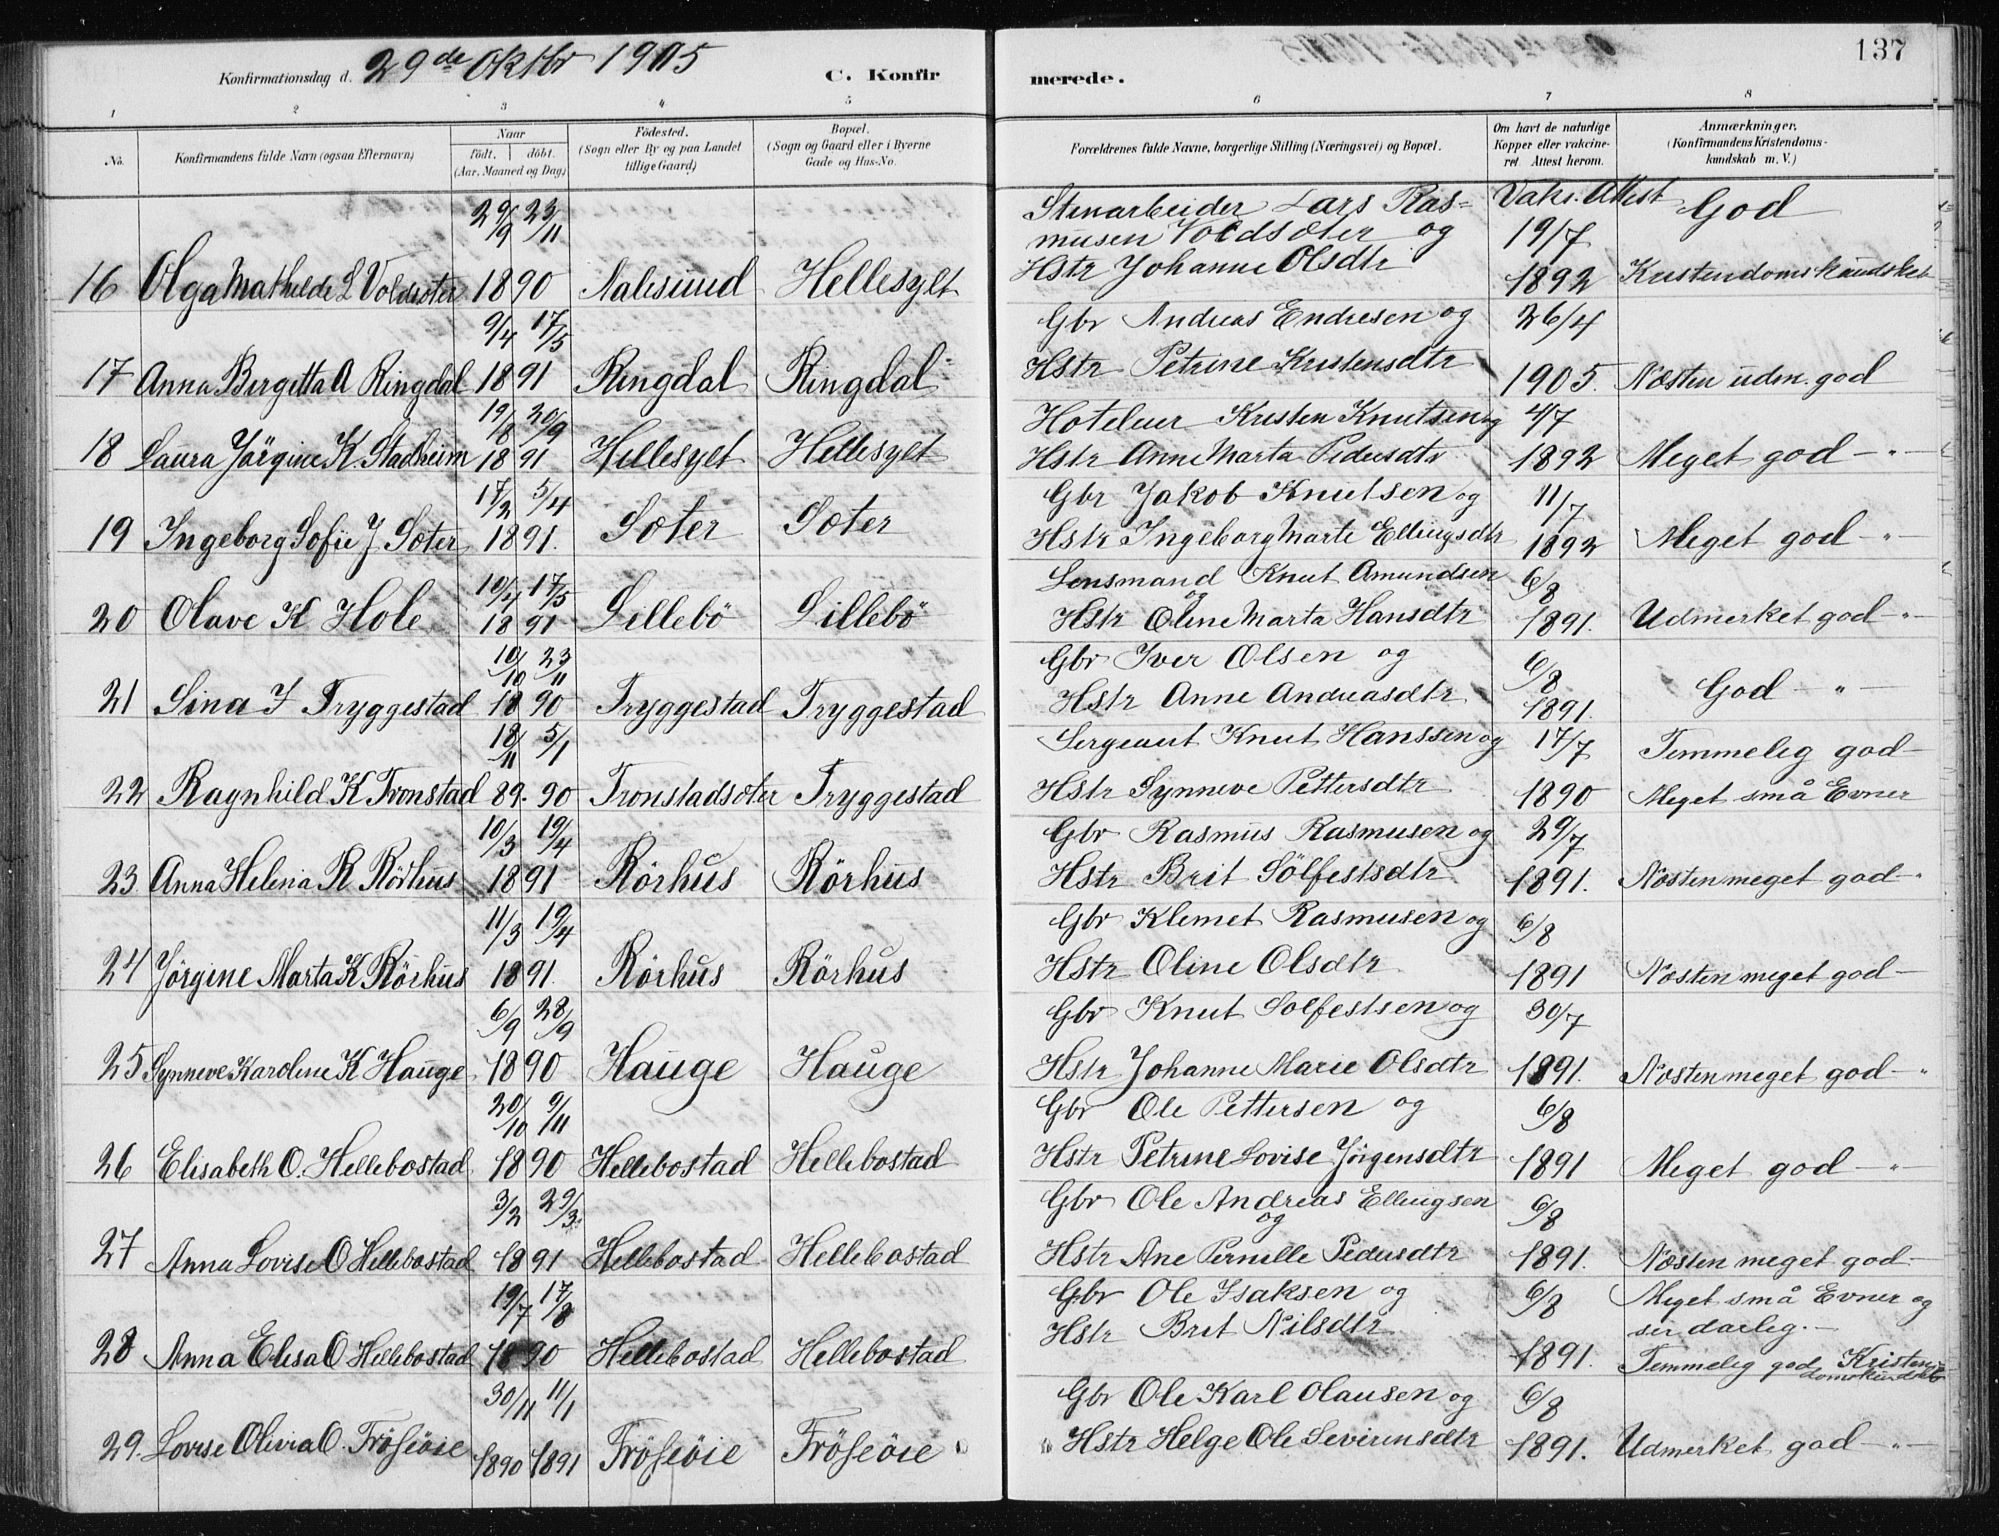 137
Konfirmationsdag d. 29de Oktbr 1905
C. Konfirmerede.
1 2 3 4 5 6 7 8
No. Konfirmandens fulde Navn (ogsaa Efternavn) Naar født, døbt. (Aar, Maaned og Dag) Födested. (Sogn eller By og paa Landet tillige Gaard) Bopæl. (Sogn og Gaard eller i Byerne Gade og Hus-No. Forældrenes fulde Navne, borgerlige Stilling (Næringsvei) og Bopæl. Om havt de naturlige Kopper eller vakcineret. Attest herom. Anmærkninger. (Konfirmandens Kristendomskundskab m. V.)
29/9 23/11 Stenarbeider Lars Ras= Vaks. Attest God
musen Voldsæter og 19/7
16 Olga Mathilde L Voldsæter 1890 Aalesund Hellesylt Hstr Johanne Olsdtr 1892 Kristendomskundskab
9/4 17/5 Gbr Andreas Endresen og 26/4
17 Anna Bergitta A Ringdal 1891 Ringdal Ringdal Hstr Petrine Kristensdtr 1905. Næsten udm. god
19/8 20/9 Hoteleier Kristen Knutsen og 4/7
18 Laura Jörgine K. Stadheim 1891 Hellesylt Hellesylt Hstr Anne Marta Pedersdtr 1892 Meget god - " -
17/2 5/4 Gbr Jakob Knutsen og 11/7
19 Ingeborg Sofie J. Sæter 1891. Sæter Sæter Hstr Ingeborg Marte Ellingsdtr 1892 Meget god - " -
10/4 17/5 Lensmand Knut Amundsen og 6/8
20 Olave K Hole 1891 Lillebö Lillebö Hstr Oline Marta Hansdtr 1891. Udmerket god - " -
10/10 23/11 Gbr Iver Olsen og 6/8
21 Sina I Tryggestad 1890 Tryggestad Tryggestad Hstr Anne Andreasdtr 1891. God - " -
18/11 5/1 Sergeant Knut Hanssen og 17/7 Temmelig god -
22 Ragnhild K Tronstad 89. 90 Tronstadsæter Tryggestad Hstr Synneve Pettersdtr 1890 Meget små Evner
10/3 19/4 Gbr Rasmus Rasmusen og 29/7
23 Anna Helena R Rörhus 1891 Rörhus Rörhus Hstr Brit Sölfestsdtr 1891. Næsten meget god - "
11/3 19/4 Gbr Klemet Rasmusen og 6/8
24 Jörgine Marta K Rörhus 1891. Rörhus Rörhus Hstr Oline Olsdtr 1891 Næsten meget god -
6/9 28/9 Gbr Knut Solfestsen og 30/7
25 Synneve Karoline K Hauge 1890 Hauge Hauge Hstr Johanne Marie Olsdtr 1891. Næsten meget god - "
20/10 9/11 Gbr Ole Pettersen og 6/8
26 Elisabeth O. Hellebostad 1890 Hellebostad Hellebostad Hstr Petrine Lovise Jörgensdtr 1891 Meget god - " -
3/2 29/3. Gbr Ole Andreas Ellingsen og 6/8
27 Anna Lovise O Hellebostad 1891 Hellebostad Hellebostad Hstr Ane Pernille Pedersdtr 1891. Næsten meget god -
19/7 17/8 Gbr Ole Isaksen og 6/8 Meget små Evner og
Hstr Brit Nilsdtr ser darlig. -
28 Anna Elisa O Hellebostad 1890 Hellebostad Hellebostad 1891. Temmelig god Kristendomskundskb
30/11 11/1 Gbr Ole Karl Olausen og 6/8
29. Lovise Olivia O. Fröseöie 1890 1891 Fröseöie Fröseöie Hstr Helge Ole Severinsdtr 1891. Udmerket god - " -